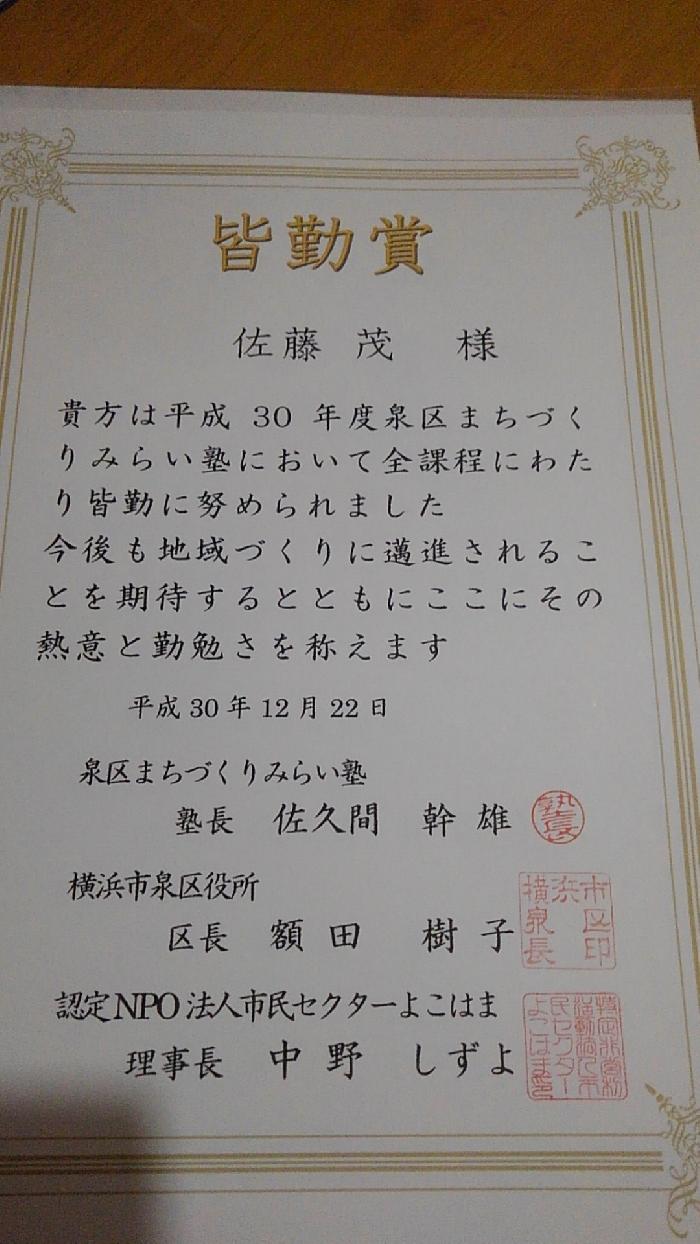 皆勤賞
佐藤 茂 様
貴方は平成 30 年度泉区まちづく
りみらい塾において全課程にわた
り皆勤に努められました
今後も地域づくりに邁進されるこ
とを期待するとともにここにその
熱意と勤勉さを称えます
平成 30 年 12 月 22 日
泉区まちづくりみらい塾
塾長 佐久間 幹 雄
塾長
横浜市泉区役所
区長 額 田 樹 子
横浜市泉区長印
認定NPO法人市民セクターよこはま
理事長 中 野 しずよ
特定非営利活動法人市民セクターよこはま印